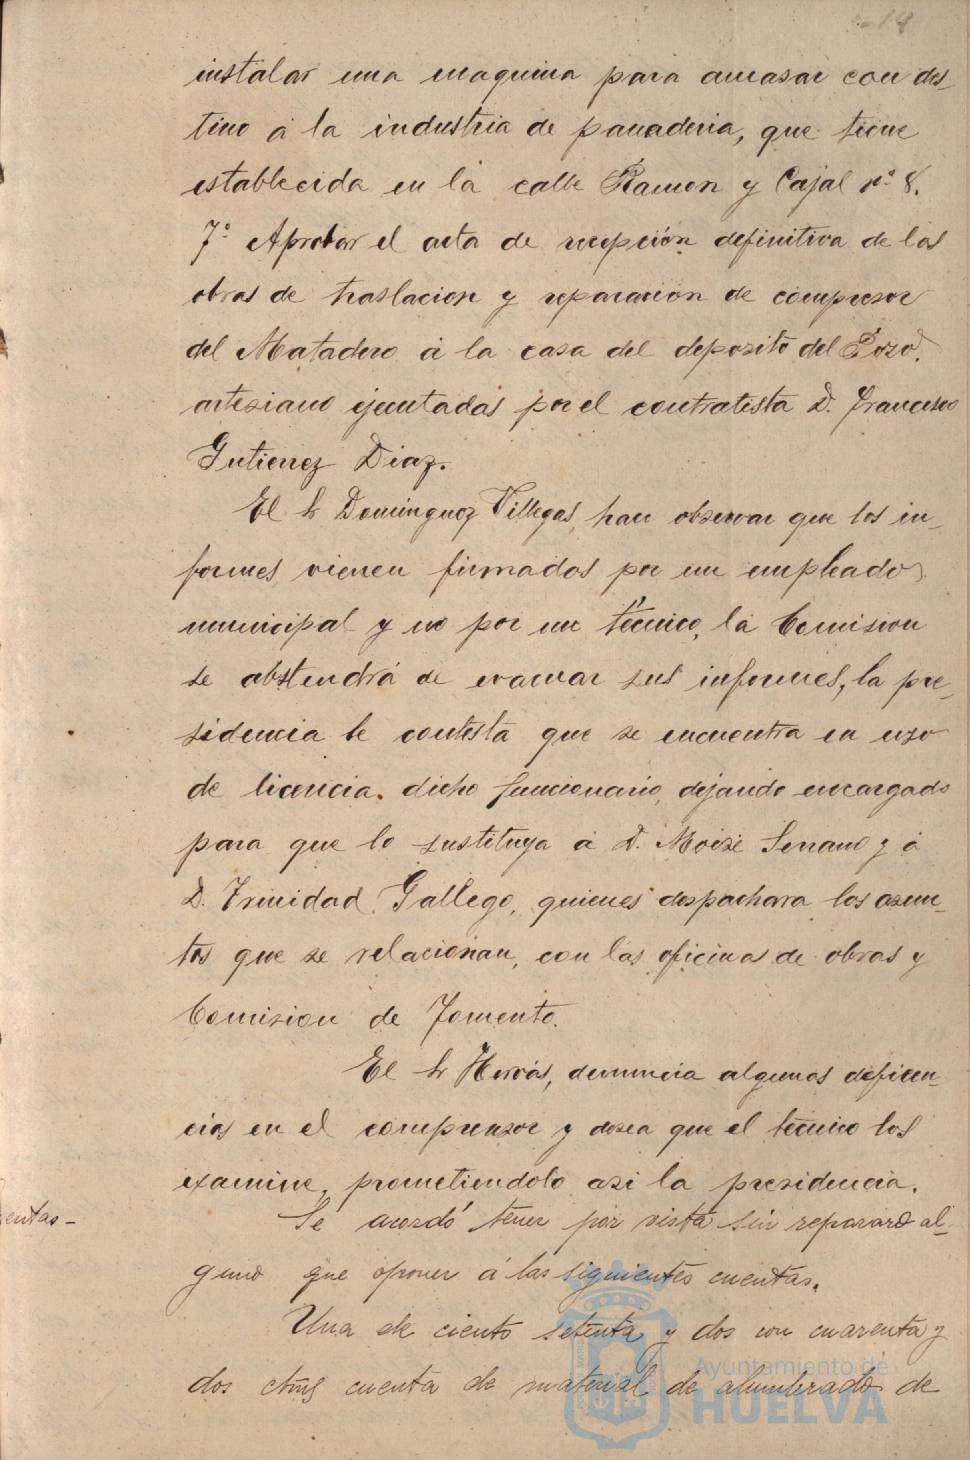 instalar una maquina para amasar con des-
tino á la industria de panaderia, que tiene
establecida en la calle Ramon y Cajal nº 8.
7º Aprobar el acta de recepción definitiva de las
obras de traslacion y reparacion de compresor
del Matadero á la casa del deposito del Pozo
artesiano ejecutadas por el contratista D. Francisco
Gutierrez Diaz.
El Sr Dominguez Villegas, hace observar que los in-
formes, vienen firmados por un empleado
municipal y no por un técnico, la Comision
se abstendrá de evacuar sus informes, la pre-
sidencia le contesta que se encuentra en uso
de licencia. dicho funcionario, dejando encargado
para que lo sustituya á D. Moisé Serrano y á
D. Trinidad Gallego, quienes despachara los asun-
tos que se relacionan, con las oficinas de obras y
Comision de Fomento.
El Sr Hervás, denuncia algunas deficien-
cias en el compresor y desea que el técnico los
examine, prometiendolo asi la presidencia.
entas-
Se acordó tener por vista sin reparo al-
guno que oponer á las siguientes cuentas.
Una de ciento setenta y dos con cuarenta y
dos ctms cuenta de material de alumbrado de
Ayuntamiento de
HUELVA